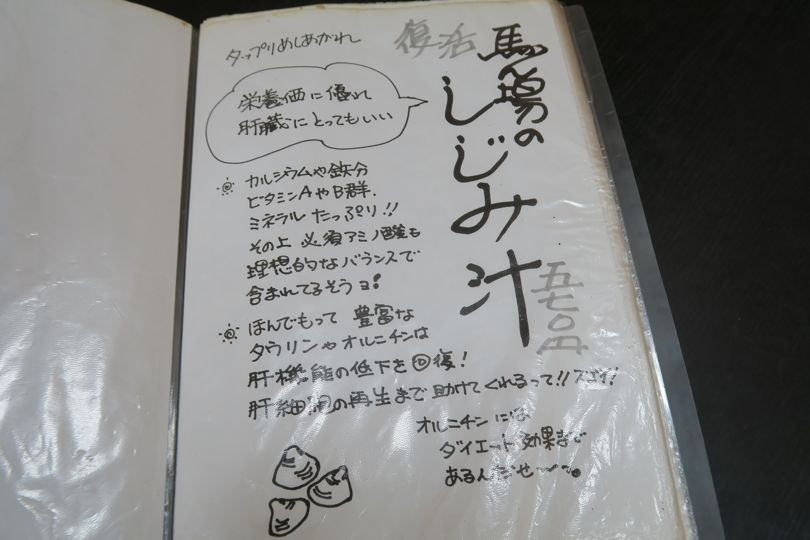 復活
馬場の
しじみ汁
五七〇円
タップリめしあがれ
栄養価に優れ
肝臓にとってもいい
カルシウムや鉄分
ビタミンAやB群、
ミネラルたっぷり!!
その上 必須アミノ酸も
理想的なバランスで
含まれてるそうョ!
ほんでもって 豊富な
タウリンやオルニチンは
肝機能の低下を回復!
肝細胞の再生まで助けてくれるって!!スゴイ!
オルニチンには
ダイエット効果まで
あるんだぜ〜〜。